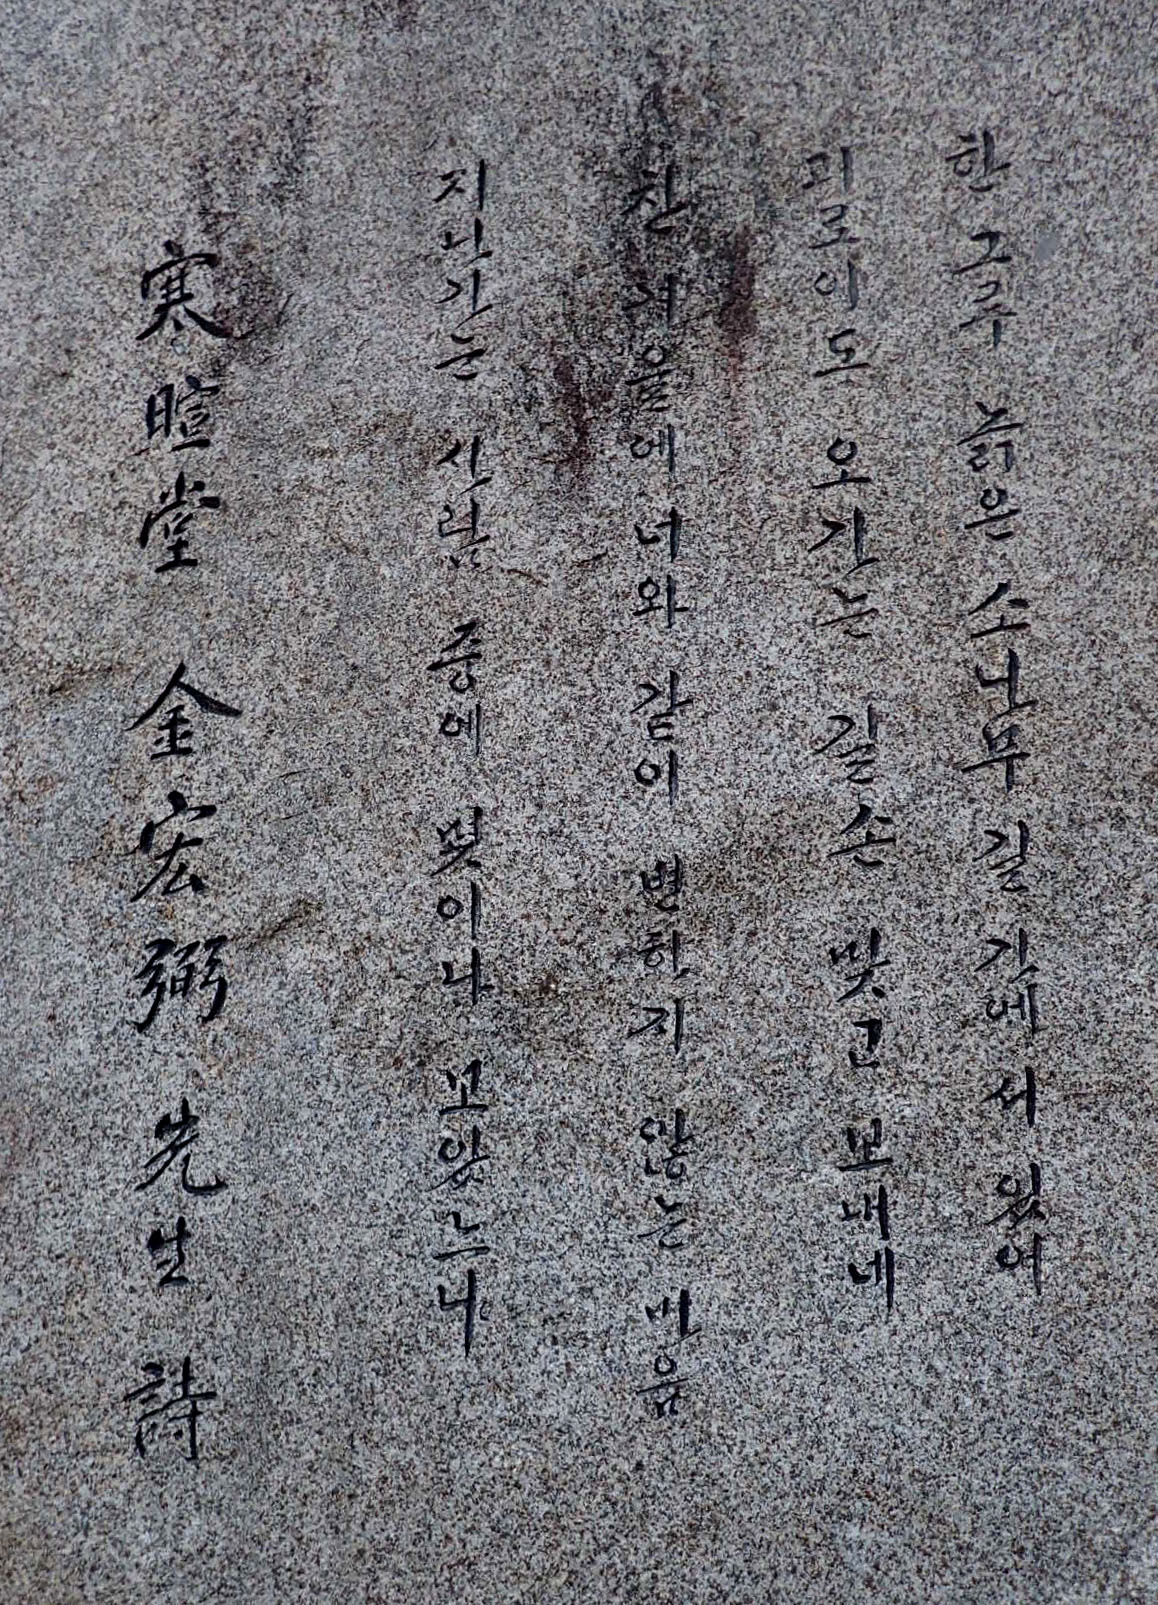 한 그루 늙은 소나무 길 가에 서 있어
괴로이도 오가는 길손 맞고 보내네
찬 겨울에 너와 같이 변하지 않는 마음
지나가는 사람 중에 몇이나 보았느냐
寒暄堂 金宏弼 先生 詩